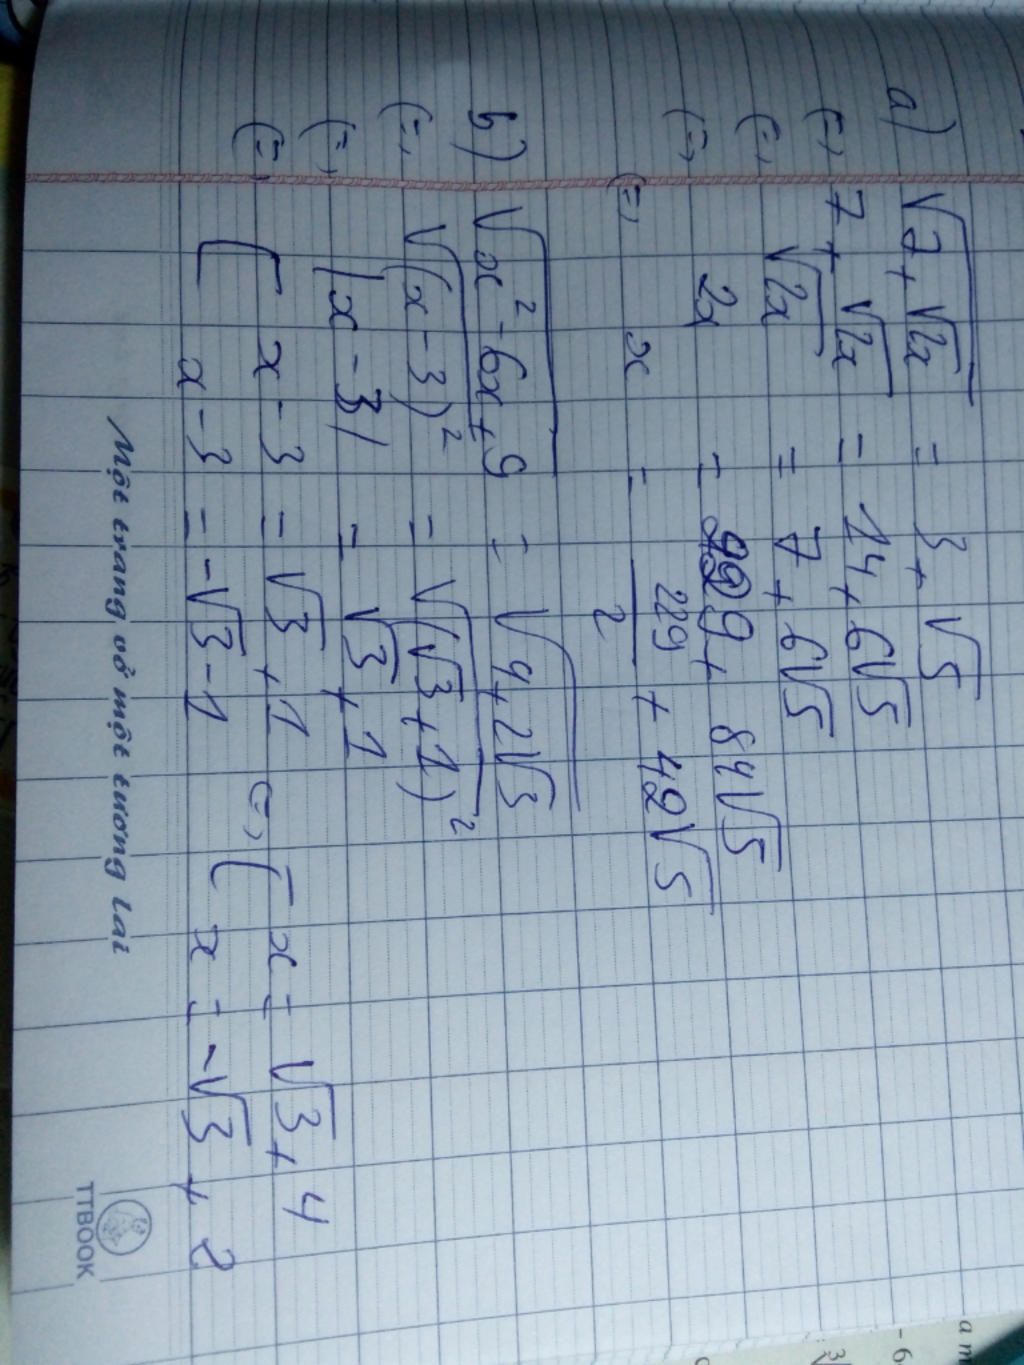 a) √(7+√2x) = 3+√5
(=) 7+√2x = 14+6√5
(=) √2x = 7+6√5
(=) 2x = 229+ 84√5
(=) x = 229/2 + 42√5
b) √(x²-6x+9) = √(4+2√3)
(=) √(x-3)² = √(√3+1)²
(=) |x-3| = √3+1
(=) [ x-3 = √3+1 (=) [ x = √3+4
x-3 = -√3-1 x = -√3+2
Một trang vở một tương lai
TTBOOK
a m
-6